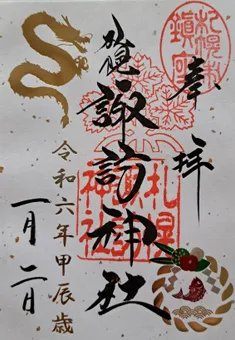 奉拝
札幌
諏訪神社
令和六年甲辰歳
一月二日
札幌
諏訪
神社